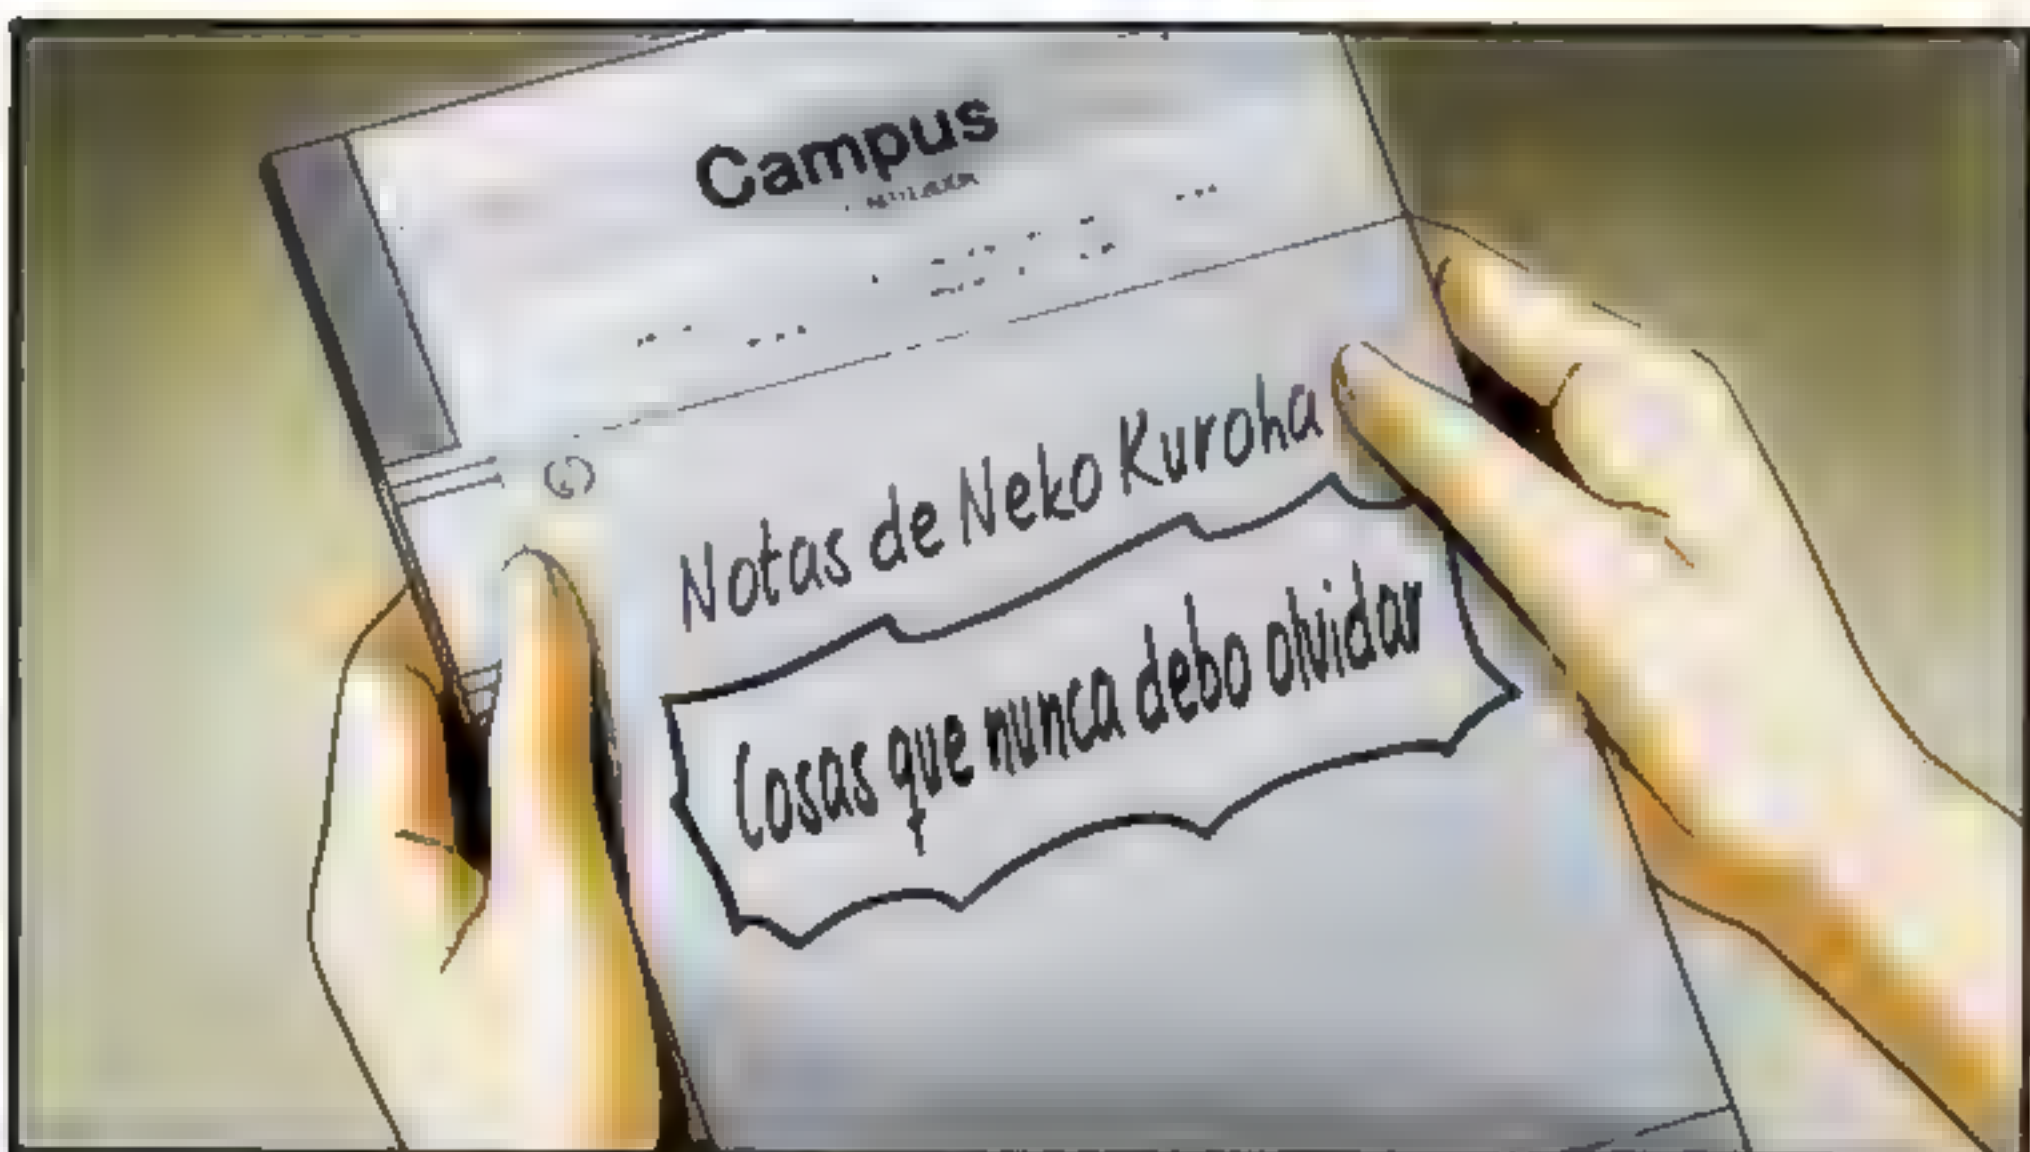 Campus
Notas de Neko Kuroha
Cosas que nunca debo olvidar